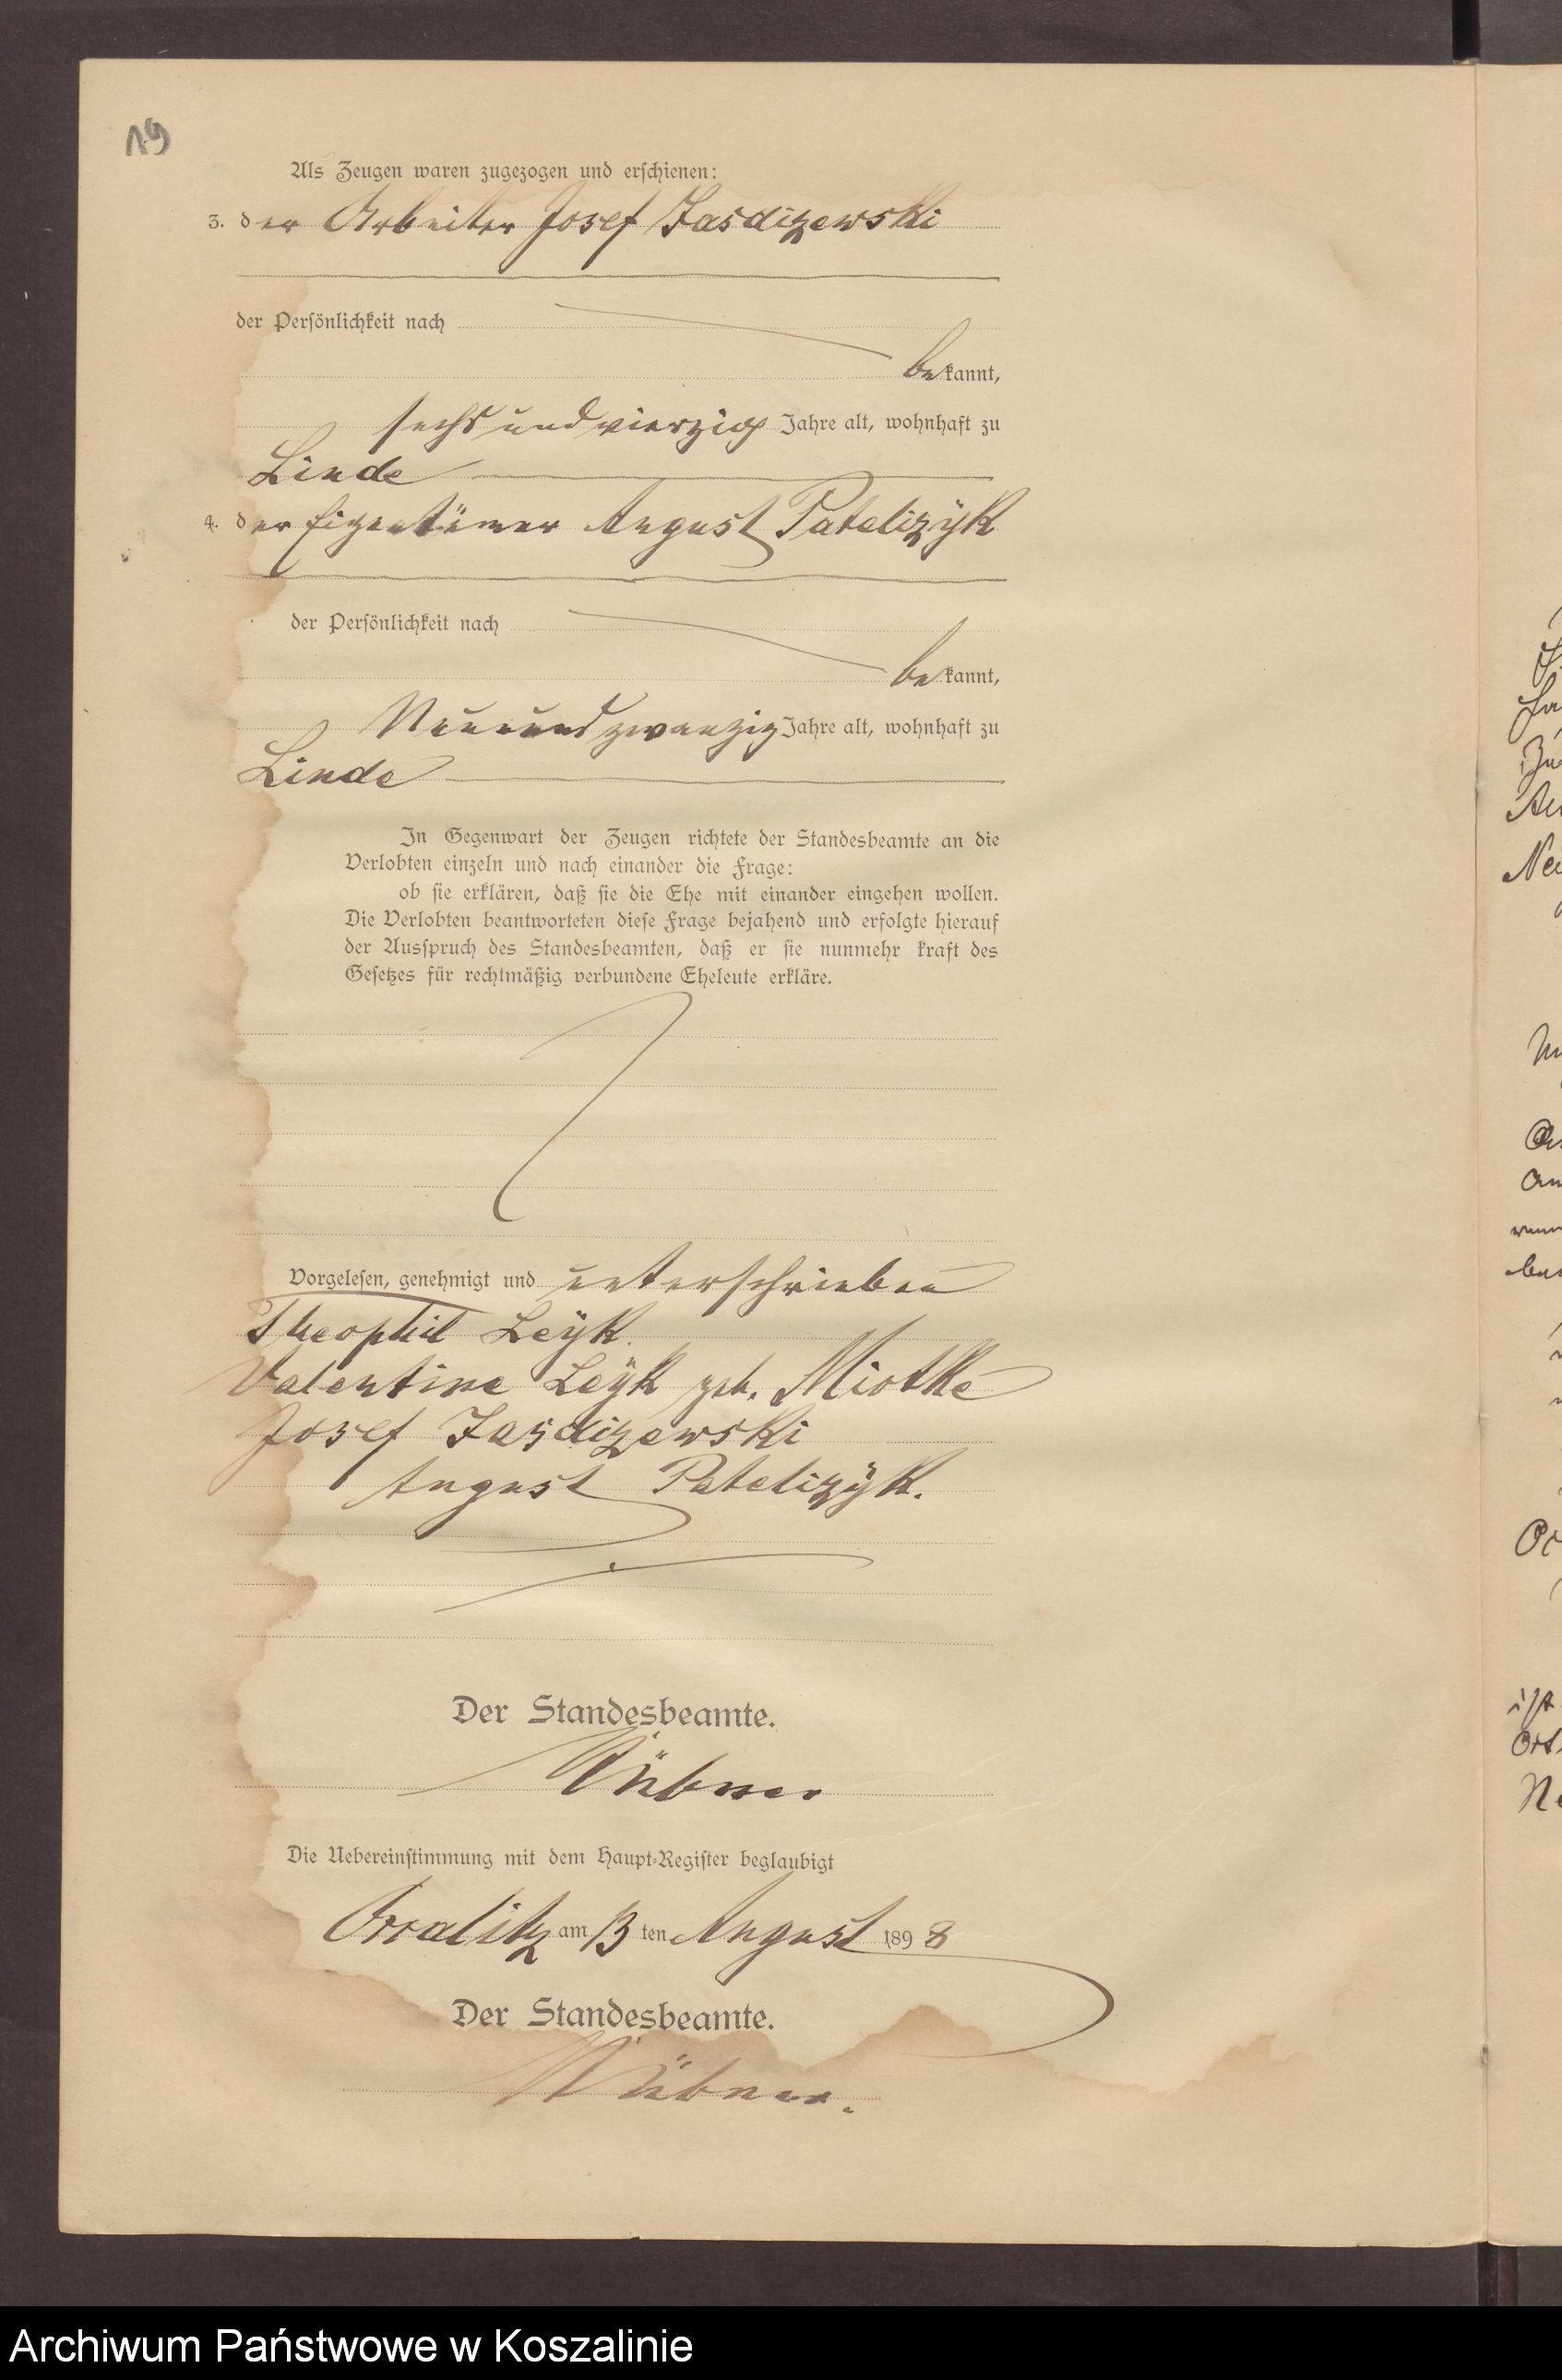 19
Als Zeugen waren zugezogen und erschienen:
3. der Arbeiter Josef Jasdizewski
der Persönlichkeit nach
bekannt,
sechs und vierzig Jahre alt, wohnhaft zu
Linde
4. der Eigentümer August Patelizÿk
der Persönlichkeit nach
bekannt,
Neunundzwanzig Jahre alt, wohnhaft zu
Linde
In Gegenwart der Zeugen richtete der Standesbeamte an die
Verlobten einzeln und nach einander die Frage:
ob sie erklären, daß sie die Ehe mit einander eingehen wollen.
Die Verlobten beantworteten diese Frage bejahend und erfolgte hierauf
der Ausspruch des Standesbeamten, daß er sie nunmehr kraft des
Gesetzes für rechtmäßig verbundene Eheleute erkläre.
Vorgelesen, genehmigt und unterschrieben
Theophil Leÿk.
Valentine Leÿk geb. Miotke
Josef Jasdizewski
August Patelizÿk.
Der Standesbeamte.
Die Uebereinstimmung mit dem Haupt-Register beglaubigt
am 13 ten August 1898
Der Standesbeamte.
Archiwum Państwowe w Koszalinie